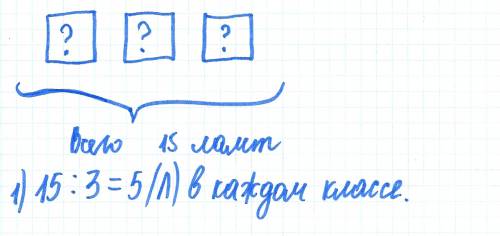 ? ? ?
Всего 15 ламп
1) 15 : 3 = 5 (Л) в каждом классе.